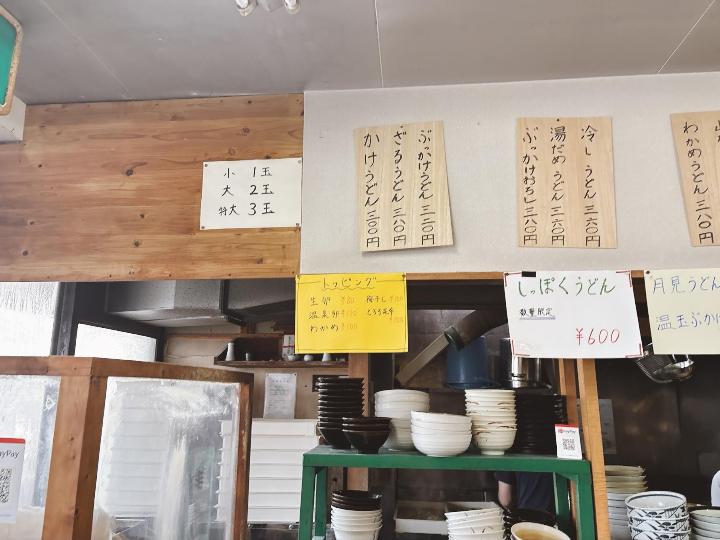 小 1玉
大 2玉
特大 3玉
ぶっかけうどん 三二〇円
ざるうどん 三八〇円
かけうどん 三〇〇円
冷し うどん 三六〇円
湯だめ うどん 三三〇円
ぶっかけおろし 三八〇円
わかめうどん
トッピング
生卵 ¥80
梅干し ¥100
温泉卵 ¥120
とろろ昆布 ¥100
わかめ ¥100
しっぽくうどん
数量限定
¥600
月見うどん
温玉ぶっか
ayPay
PayPay